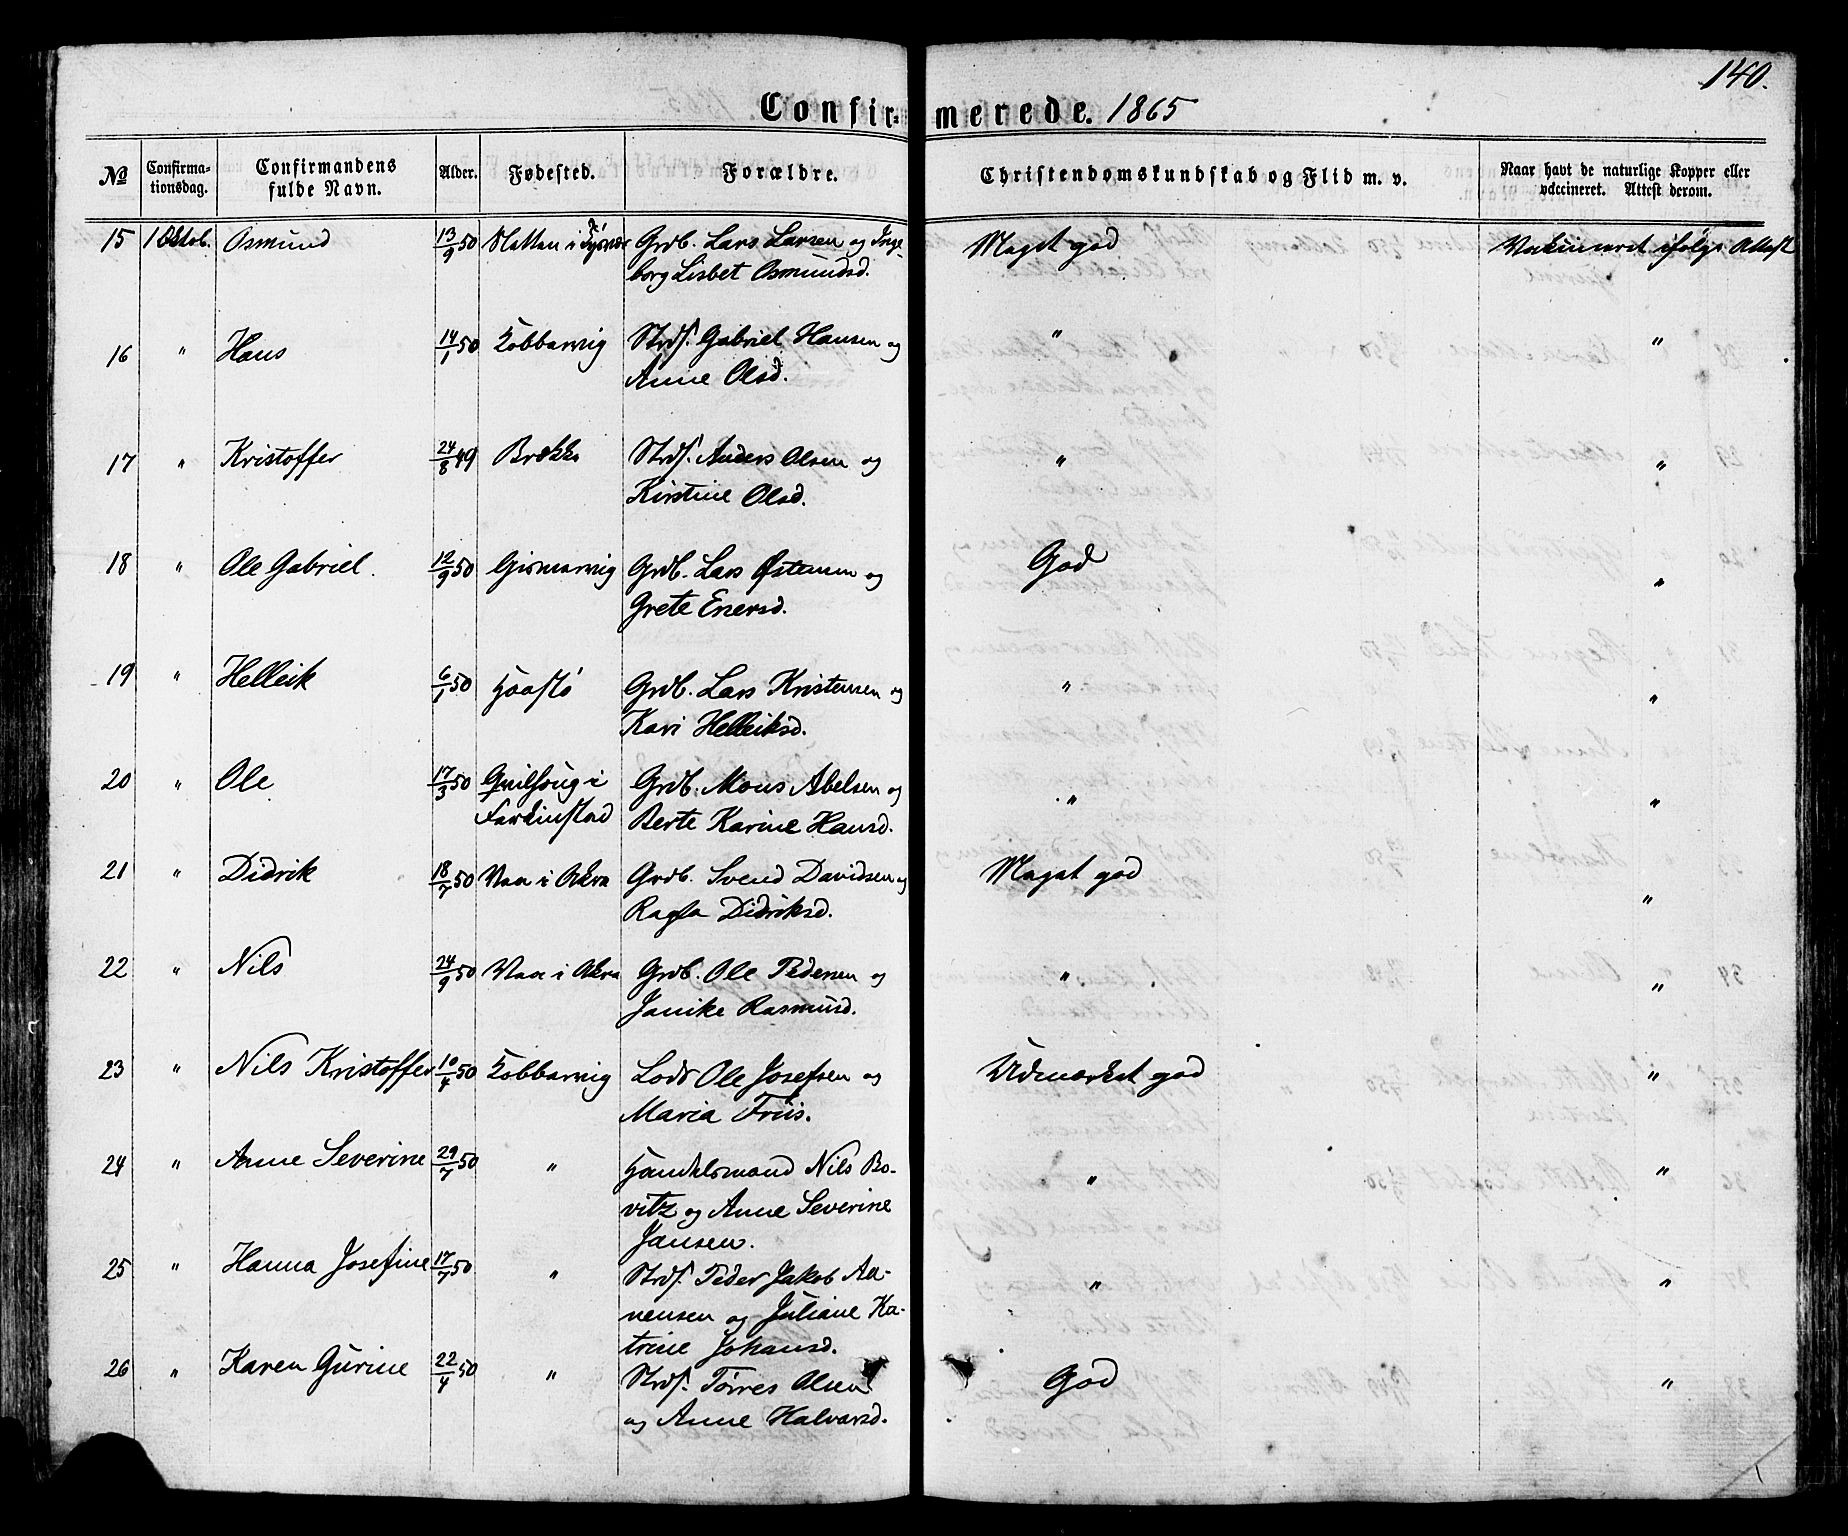 140.
Confirmerede. 1865
№ Confirmationsdag. Confirmandens fulde Navn. Alder. Fødested. Forældre. Christendomskundskab og Flid m. v. Naar havt de naturlige Kopper eller vaccineret. Attest derom.
15 1 Oktob. Osmund 13/9 50 i Grdb. Lars Larsen og Inge- Meget god Vakcineret ifølge Attest
borg Lisbet Osmundsd.
16 " Hans 14/1 50 Kobbarvig Strds. Gabriel Hansen og " "
Anne Olsd.
17 " Kristoffer 24/8 49 Brekke Strds. Anders Olsen og " "
Kirstine Olsd.
18 " Ole Gabriel. 12/9 50 Gismarvig Grdb. Lars Østensen og God "
Grete Enersd.
19 " Helleik 6/1 50 Haastø Grdb. Lars Kristensen og " "
Kari Helleiksd.
20 " Ole 17/3 50 i Grdb. Mons Abelsen og " "
Ferkinstad Berte Karine Hansd.
21 " Didrik 18/7 50 Vea i Akra Grdb. Svend Davidsen og Meget god "
Ragla Didriksd.
22 " Nils 24/9 50 Vea i Akra Grdb. Ole Pedersen og " "
Janike Rasmusd.
23 " Nils Kristoffer 10/4 50 Kobbarvig Lods Ole Josefsen og Udmærket god "
Maria Friis.
24 " Anne Severine 29/7 50 " Handelsmand Nils Bo- " "
vitz og Anne Severine
Jansen.
25 " Hanna Josefine 17/7 50 " Strds. Peder Jakob Aa- " "
nensen og Juliane Ka-
trine Johansd.
26 " Karen Gurine 22/4 50 " Strds. Tørres Olsen God "
og Anne Halvarsd.